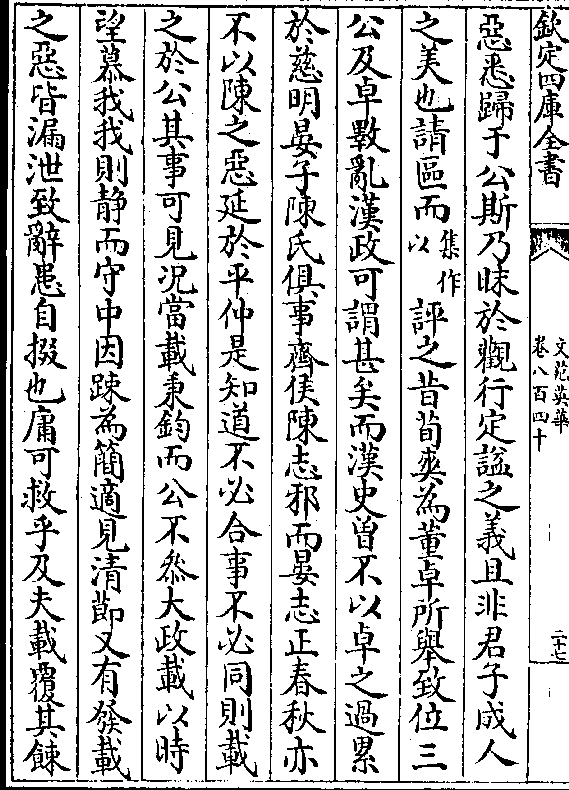 欽定四庫全書
文苑英華
卷八百四十
二十七
惡悉歸于公斯乃昧於觀行定諡之義且非君子成人
之美也請區而集作以評之昔荀爽為董卓所舉致位三
公及卓斁亂漢政可謂甚矣而漢史曾不以卓之過累
於慈明晏子陳氏俱事齊侯陳志邪而晏志正春秋亦
不以陳之惡延於平仲是知道不必合事不必同則載
之於公其事可見况當載秉鈞而公不叅大政載以時
望慕我我則静而守中因踈為簡適見清節又有發載
之惡皆漏泄致辭患自掇也庸可救乎及夫載覆其餗